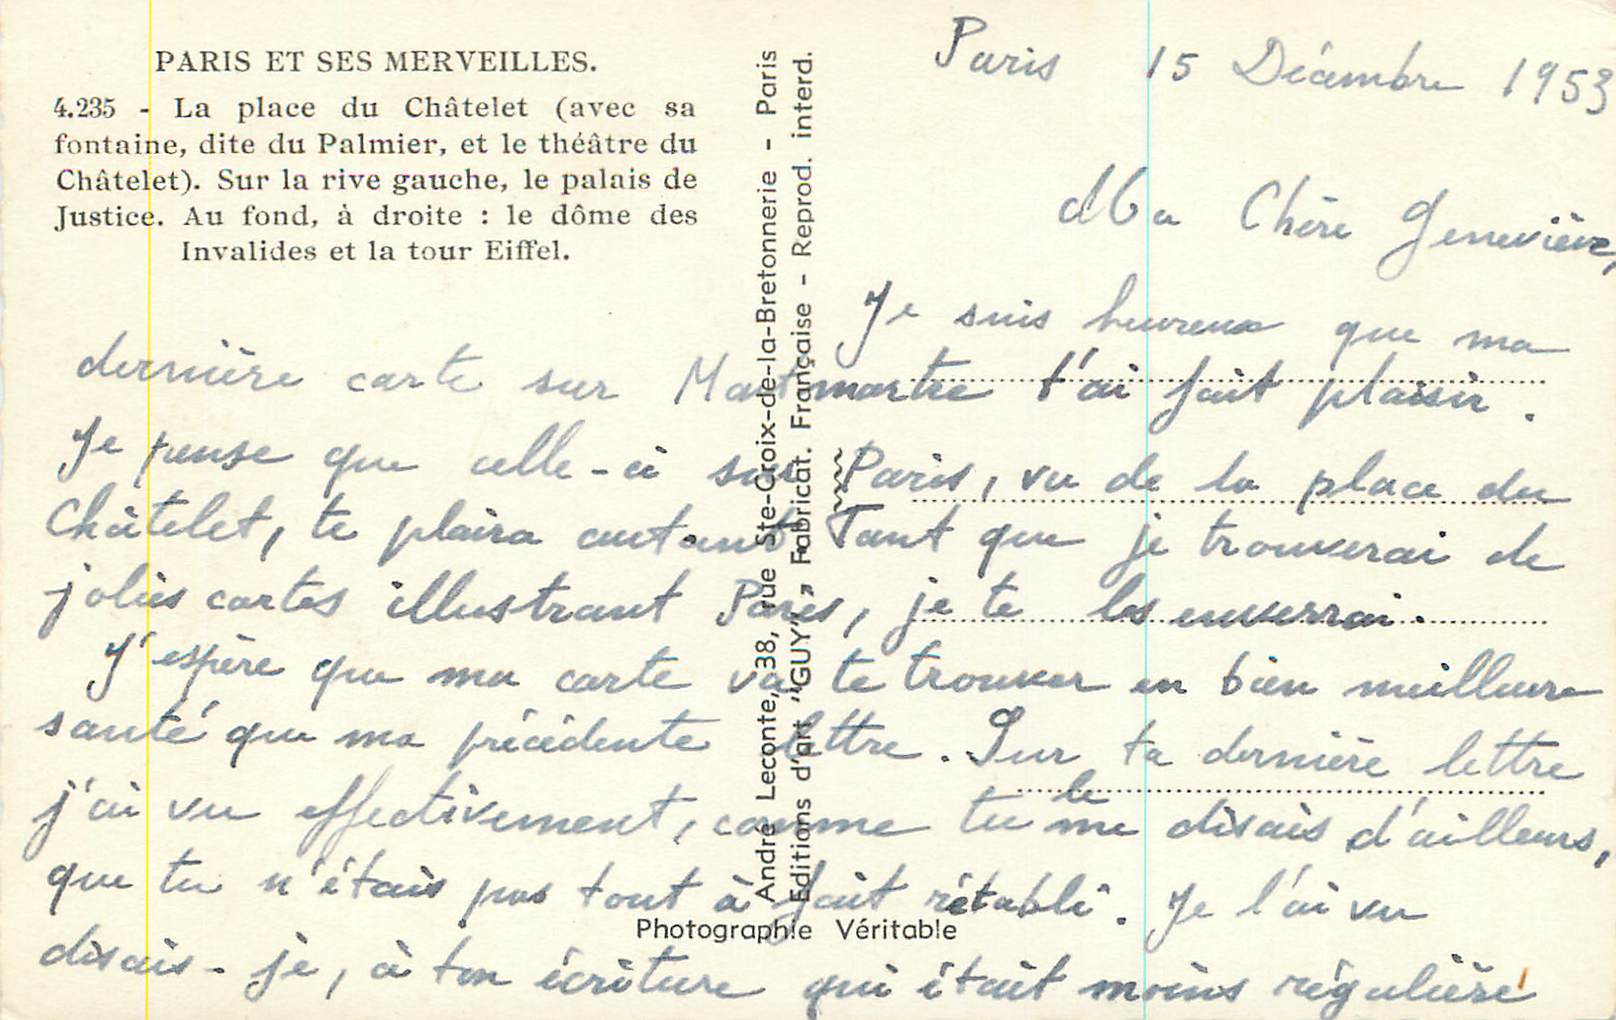 PARIS ET SES MERVEILLES.
4.235 - La place du Châtelet (avec sa
fontaine, dite du Palmier, et le théâtre du
Châtelet). Sur la rive gauche, le palais de
Justice. Au fond, à droite : le dôme des
Invalides et la tour Eiffel.
André Leconte, 38, rue Ste-Croix-de-la-Bretonnerie - Paris
Editions d'art "GUY" „ Fabricat. Française - Reprod. interd.
Photographie Véritable
Paris 15 Décembre 1953
Ma Chère Geneviève,
Je suis heureux que ma
dernière carte sur Montmartre t'ai fait plaisir.
Je pense que celle-ci sur Paris, vu de la place du
Châtelet, te plaira autant. Tant que je trouverai de
jolies cartes illustrant Paris, je te les enverrai.
J'espère que ma carte va te trouver en bien meilleure
santé que ma précédente lettre. Sur ta dernière lettre
j'ai vu effectivement, comme tu me le disais d'ailleurs,
que tu n'étais pas tout à fait rétabli. Je l'ai vu
disais-je, à ton écriture qui était moins régulière